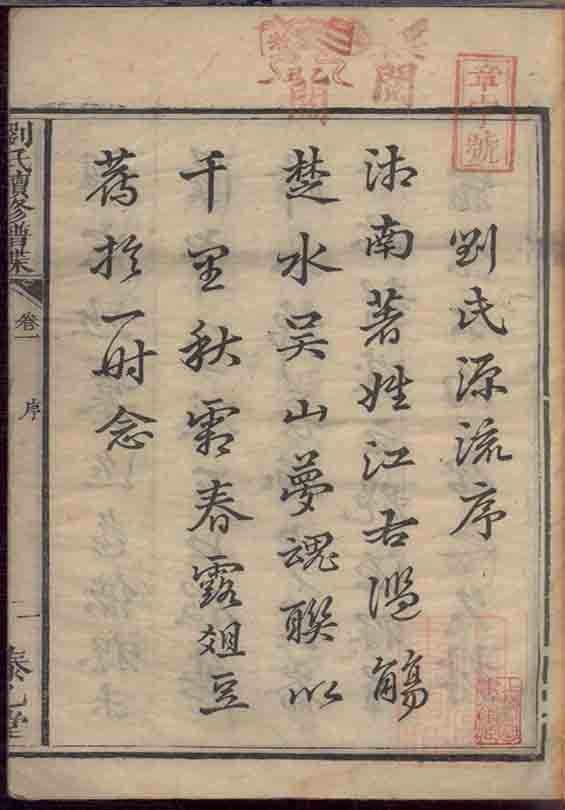 劉氏源流序
湖南著姓江右濫觴
楚水吴山夢魂聯以
千里秋霜春露俎豆
薦於一时念
劉氏續修譜牒
卷一
序
一
章字號